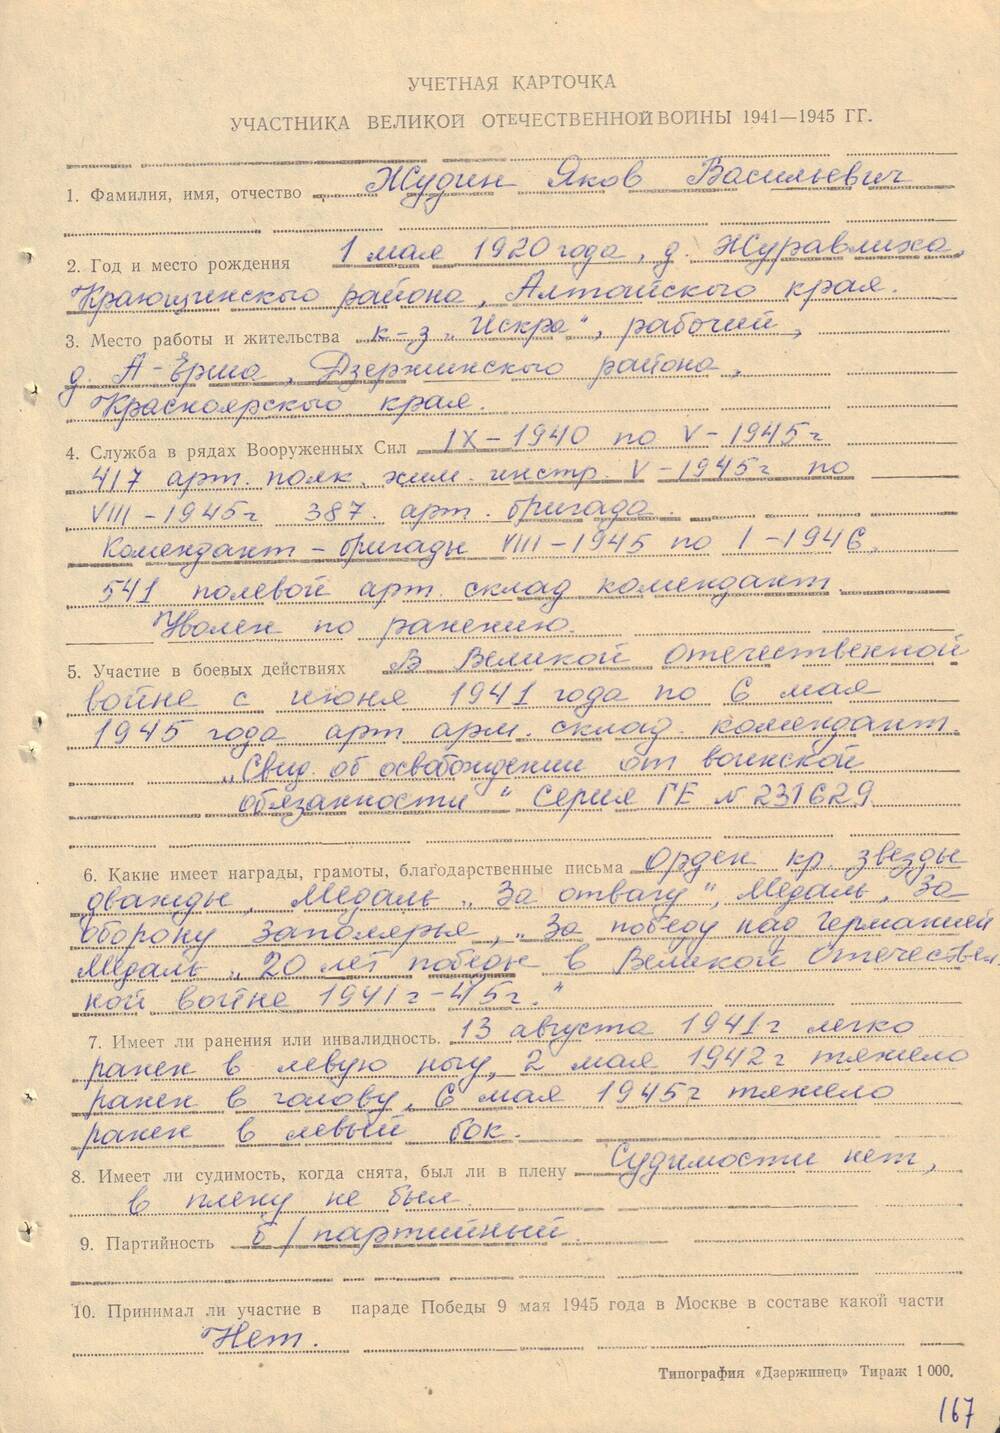 УЧЕТНАЯ КАРТОЧКА
УЧАСТНИКА ВЕЛИКОЙ ОТЕЧЕСТВЕННОЙ ВОЙНЫ 1941—1945 ГГ.
1. Фамилия, имя, отчество Жудин Яков Васильевич
2. Год и место рождения 1 мая 1920 года, д. Журавлиха,
Крающкинского района, Алтайского края.
3. Место работы и жительства к-з „Искра", рабочий,
д. А-Ерша, Дзержинского района,
Красноярского края.
4. Служба в рядах Вооруженных Сил IX-1940 по V-1945г
417 арт. полк хим. инстр. V-1945г по
VIII-1945г 387. арт. бригада.
комендант-бригады VIII-1945 по I-1946.
541 полевой арт. склад комендант
Уволен по ранению.
5. Участие в боевых действиях В Великой отечественной
войне с июня 1941 года по 6 мая
1945 года арт арм. склад. комендант.
„Свид. об освобождении от воинской
обязанности" серия ГЕ № 231629.
6. Какие имеет награды, грамоты, благодарственные письма Орден кр. звезды
дважды, Медаль „За отвагу", Медаль „За
оборону заполярья, „За победу над Германией
Медаль „20 лет победы в Великой Отечествен
ной войне 1941г-45г."
7. Имеет ли ранения или инвалидность. 13 августа 1941г легко
ранен в левую ногу, 2 мая 1942г тяжело
ранен в голову, 6 мая 1945г тяжело
ранен в левый бок.
8. Имеет ли судимость, когда снята, был ли в плену Судимости нет,
в плену не был.
9. Партийность б/партийный.
10. Принимал ли участие в параде Победы 9 мая 1945 года в Москве в составе какой части
Нет.
Типография «Дзержинец» Тираж 1 000.
167